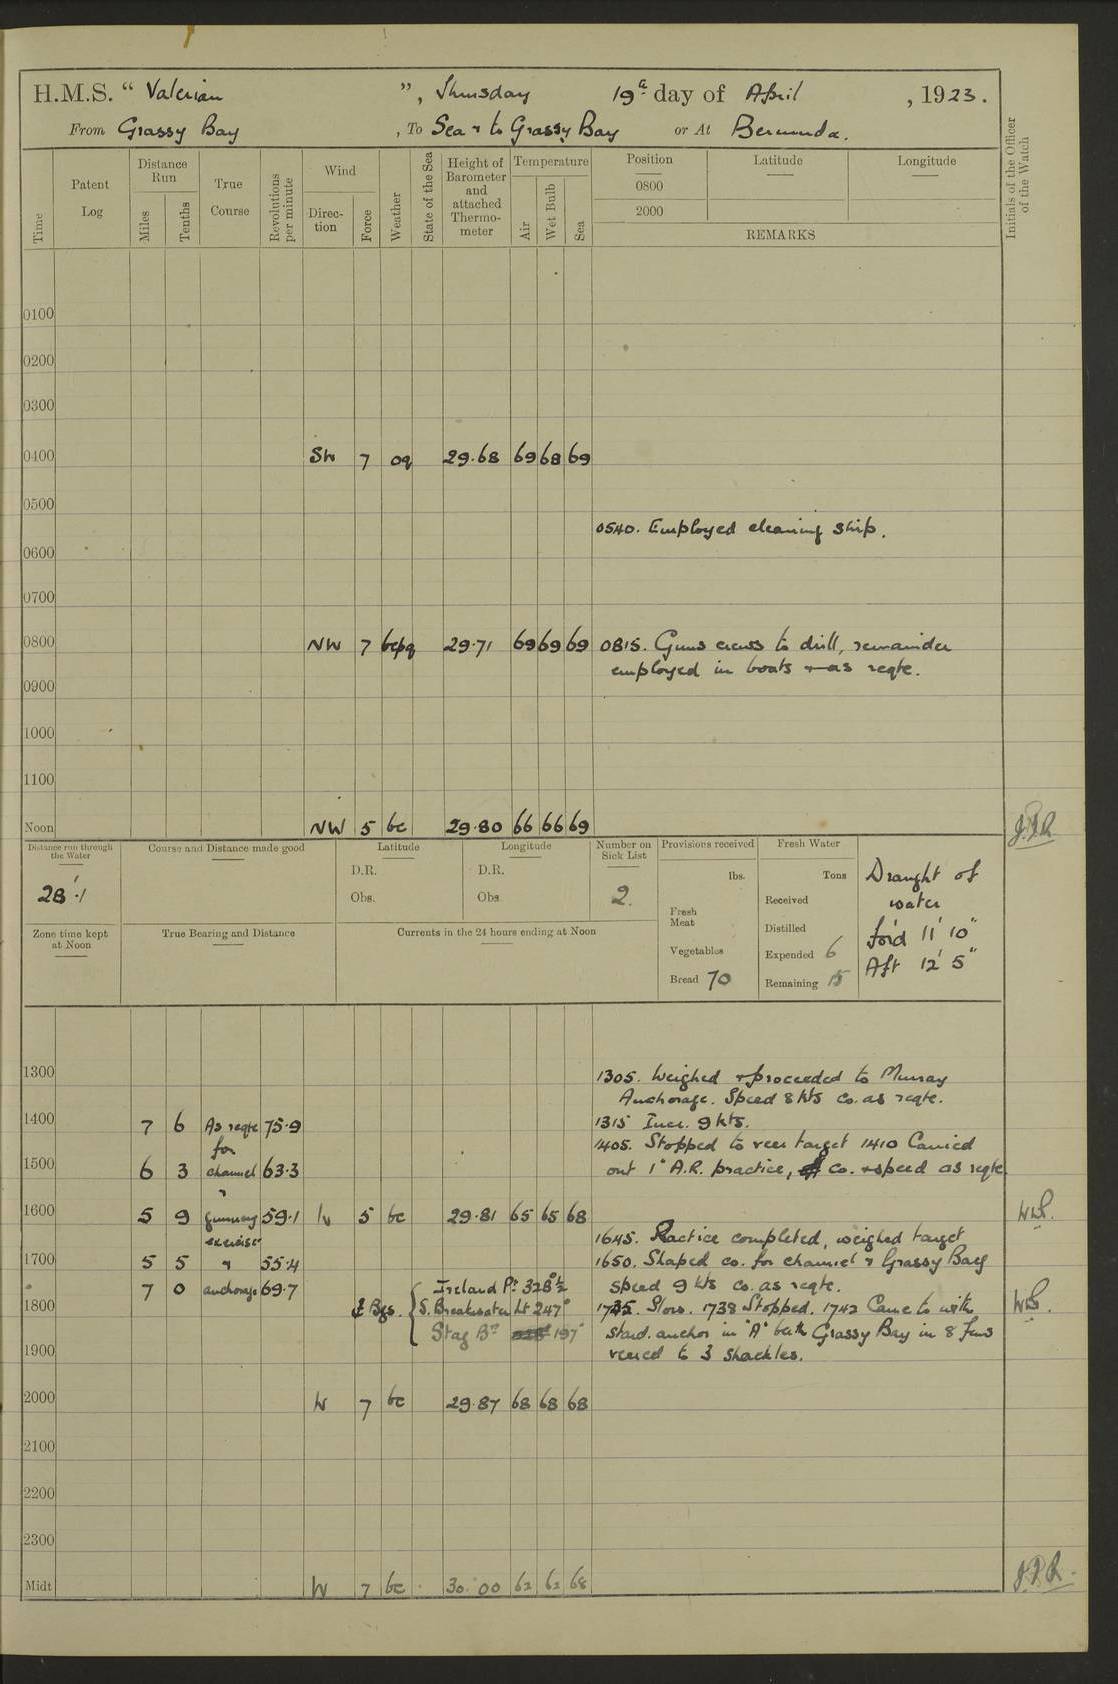 H.M.S. " Valerian ", Thursday 19th day of April, 1923.
From Grassy Bay, To Sea & to Grassy Bay or At Bermuda.
Time Patent Log Distance Run Miles Tenths True Course Revolutions per minute Wind Direction Force Weather State of the Sea Height of Barometer and attached Thermometer Temperature Air Wet Bulb Sea Position Latitude Longitude Initials of the Officer of the Watch
0800
2000
REMARKS
0100
0200
0300
0400 SW 7 oq 29.68 69 68 69
0500
0540. Employed cleaning ship.
0600
0700
0800 NW 7 bcpq 29.71 69 69 69 0815. Guns crews to drill, remainder
employed in boats & as reqte.
0900
1000
1100
Noon NW 5 bc 29.80 66 66 69 J.P.R.
Distance run through the Water 28'.1
Course and Distance made good
Latitude D.R. Obs.
Longitude D.R. Obs.
Number on Sick List 2.
Provisions received lbs. Fresh Meat Vegetables Bread 70
Fresh Water Tons Received Distilled Expended 6 Remaining 15
Draught of
water
for'd 11' 10"
Aft 12' 5"
Zone time kept at Noon
True Bearing and Distance
Currents in the 24 hours ending at Noon
1300 1305. Weighed & proceeded to Murray
Anchorage. Speed 8 kts Co. as reqte.
1400 7 6 As reqte 75.9 1315 Incr. 9 kts.
for
1405. Stopped to veer target 1410 Carried
1500 6 3 channel 63.3 out 1" A.R. practice, Co. & speed as reqte.
&
1600 5 9 gunnery 59.1 W 5 bc 29.81 65 65 68
exercise
1645. Practice completed, weighed target
1700 5 5 & 55.4 1650. Shaped co. for channel & Grassy Bay
7 0 anchorage 69.7 Ireland Pt 328°½ speed 9 kts co. as reqte.
1800 Bgs. S. Breakwater Lt 247° 1735. Slow. 1738 Stopped. 1742 Came to with
Stag Bn 197° Stard. anchor in 'A' berth Grassy Bay in 8 fms
1900 veered to 3 shackles.
2000 W 7 bc 29.87 68 68 68
2100
2200
2300
Midt W 7 bc 30.00 62 62 68 J.P.R.